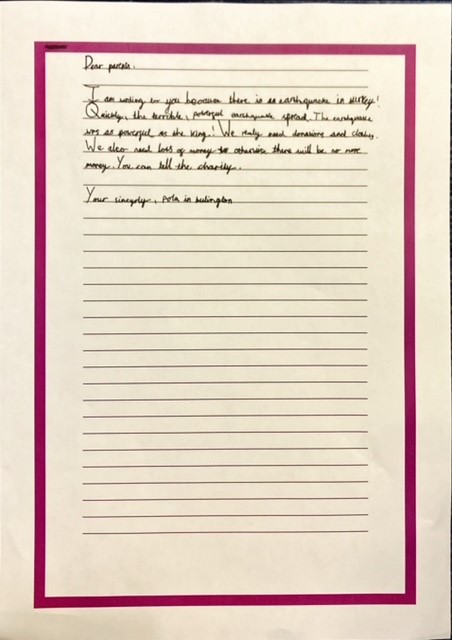 Dear parents,
I am writing to you because there is an earthquake in turkey!
Quickly, the terrible, powerful earthquake spread. The earthquake
was as powerful as the king! We realy need donations and clothes.
We also need loss of money to otherwise there will be no more
money. You can tell the charity.
Your sincerely, pola in